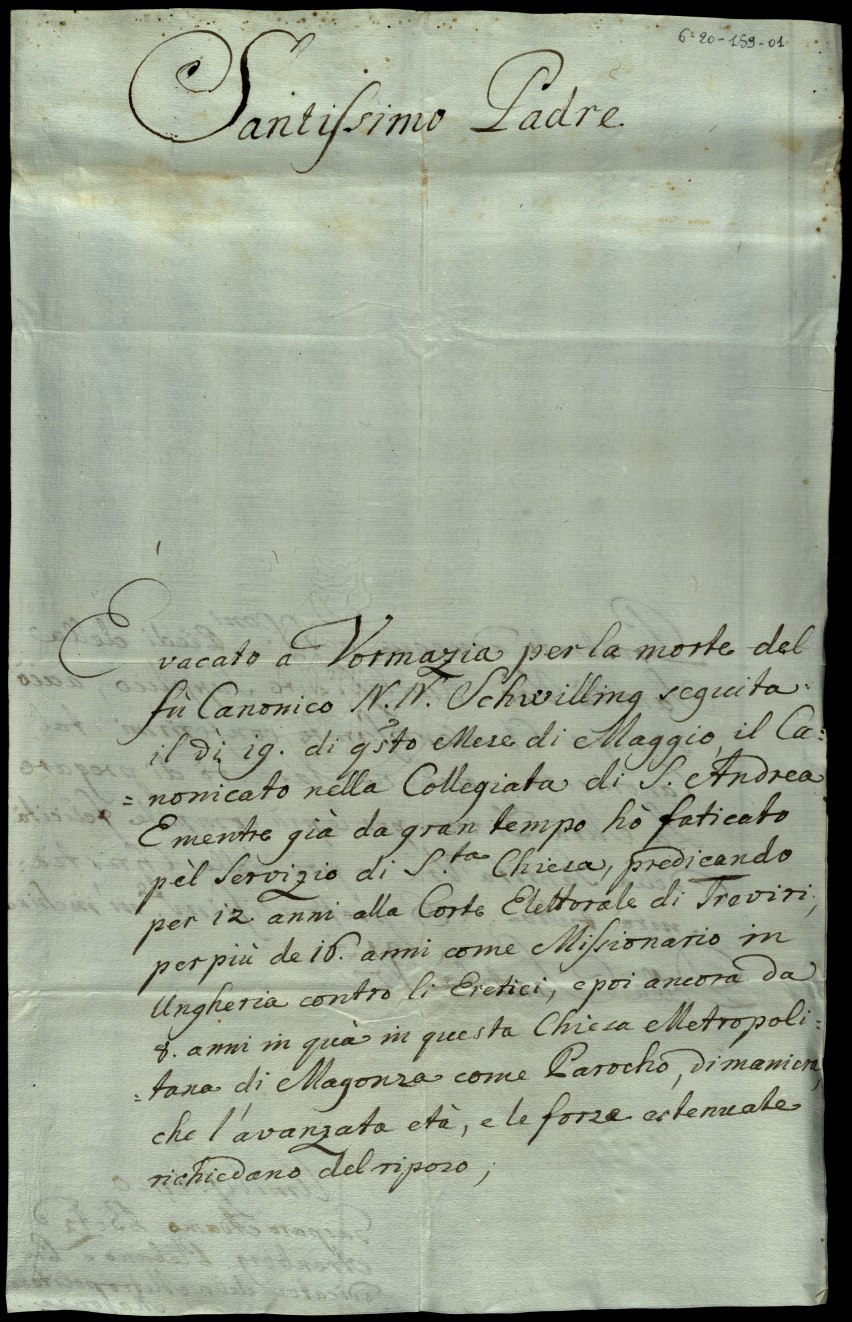 6-20-159-01
Santissimo Padre
E vacato a Vormazia per la morte del
fù Canonico N. N. Schwilling seguita
il di 19. di qsto Mese di Maggio, il Ca:
=nonicato nella Collegiata di S. Andrea
E mentre già da gran tempo hò faticato
pèl Servizio di S.ta Chiesa, predicando
per 12 anni alla Corte Elettorale di Treviri,
per più de 16. anni come Missionario in
Ungheria contro li Eretici, e poi ancora da
8. anni in quà in questa Chiesa Metropoli:
=tana di Magonza come Parocho, dimaniera,
che l'avanzata età, e le forze estenuate
richiedano del riposo;